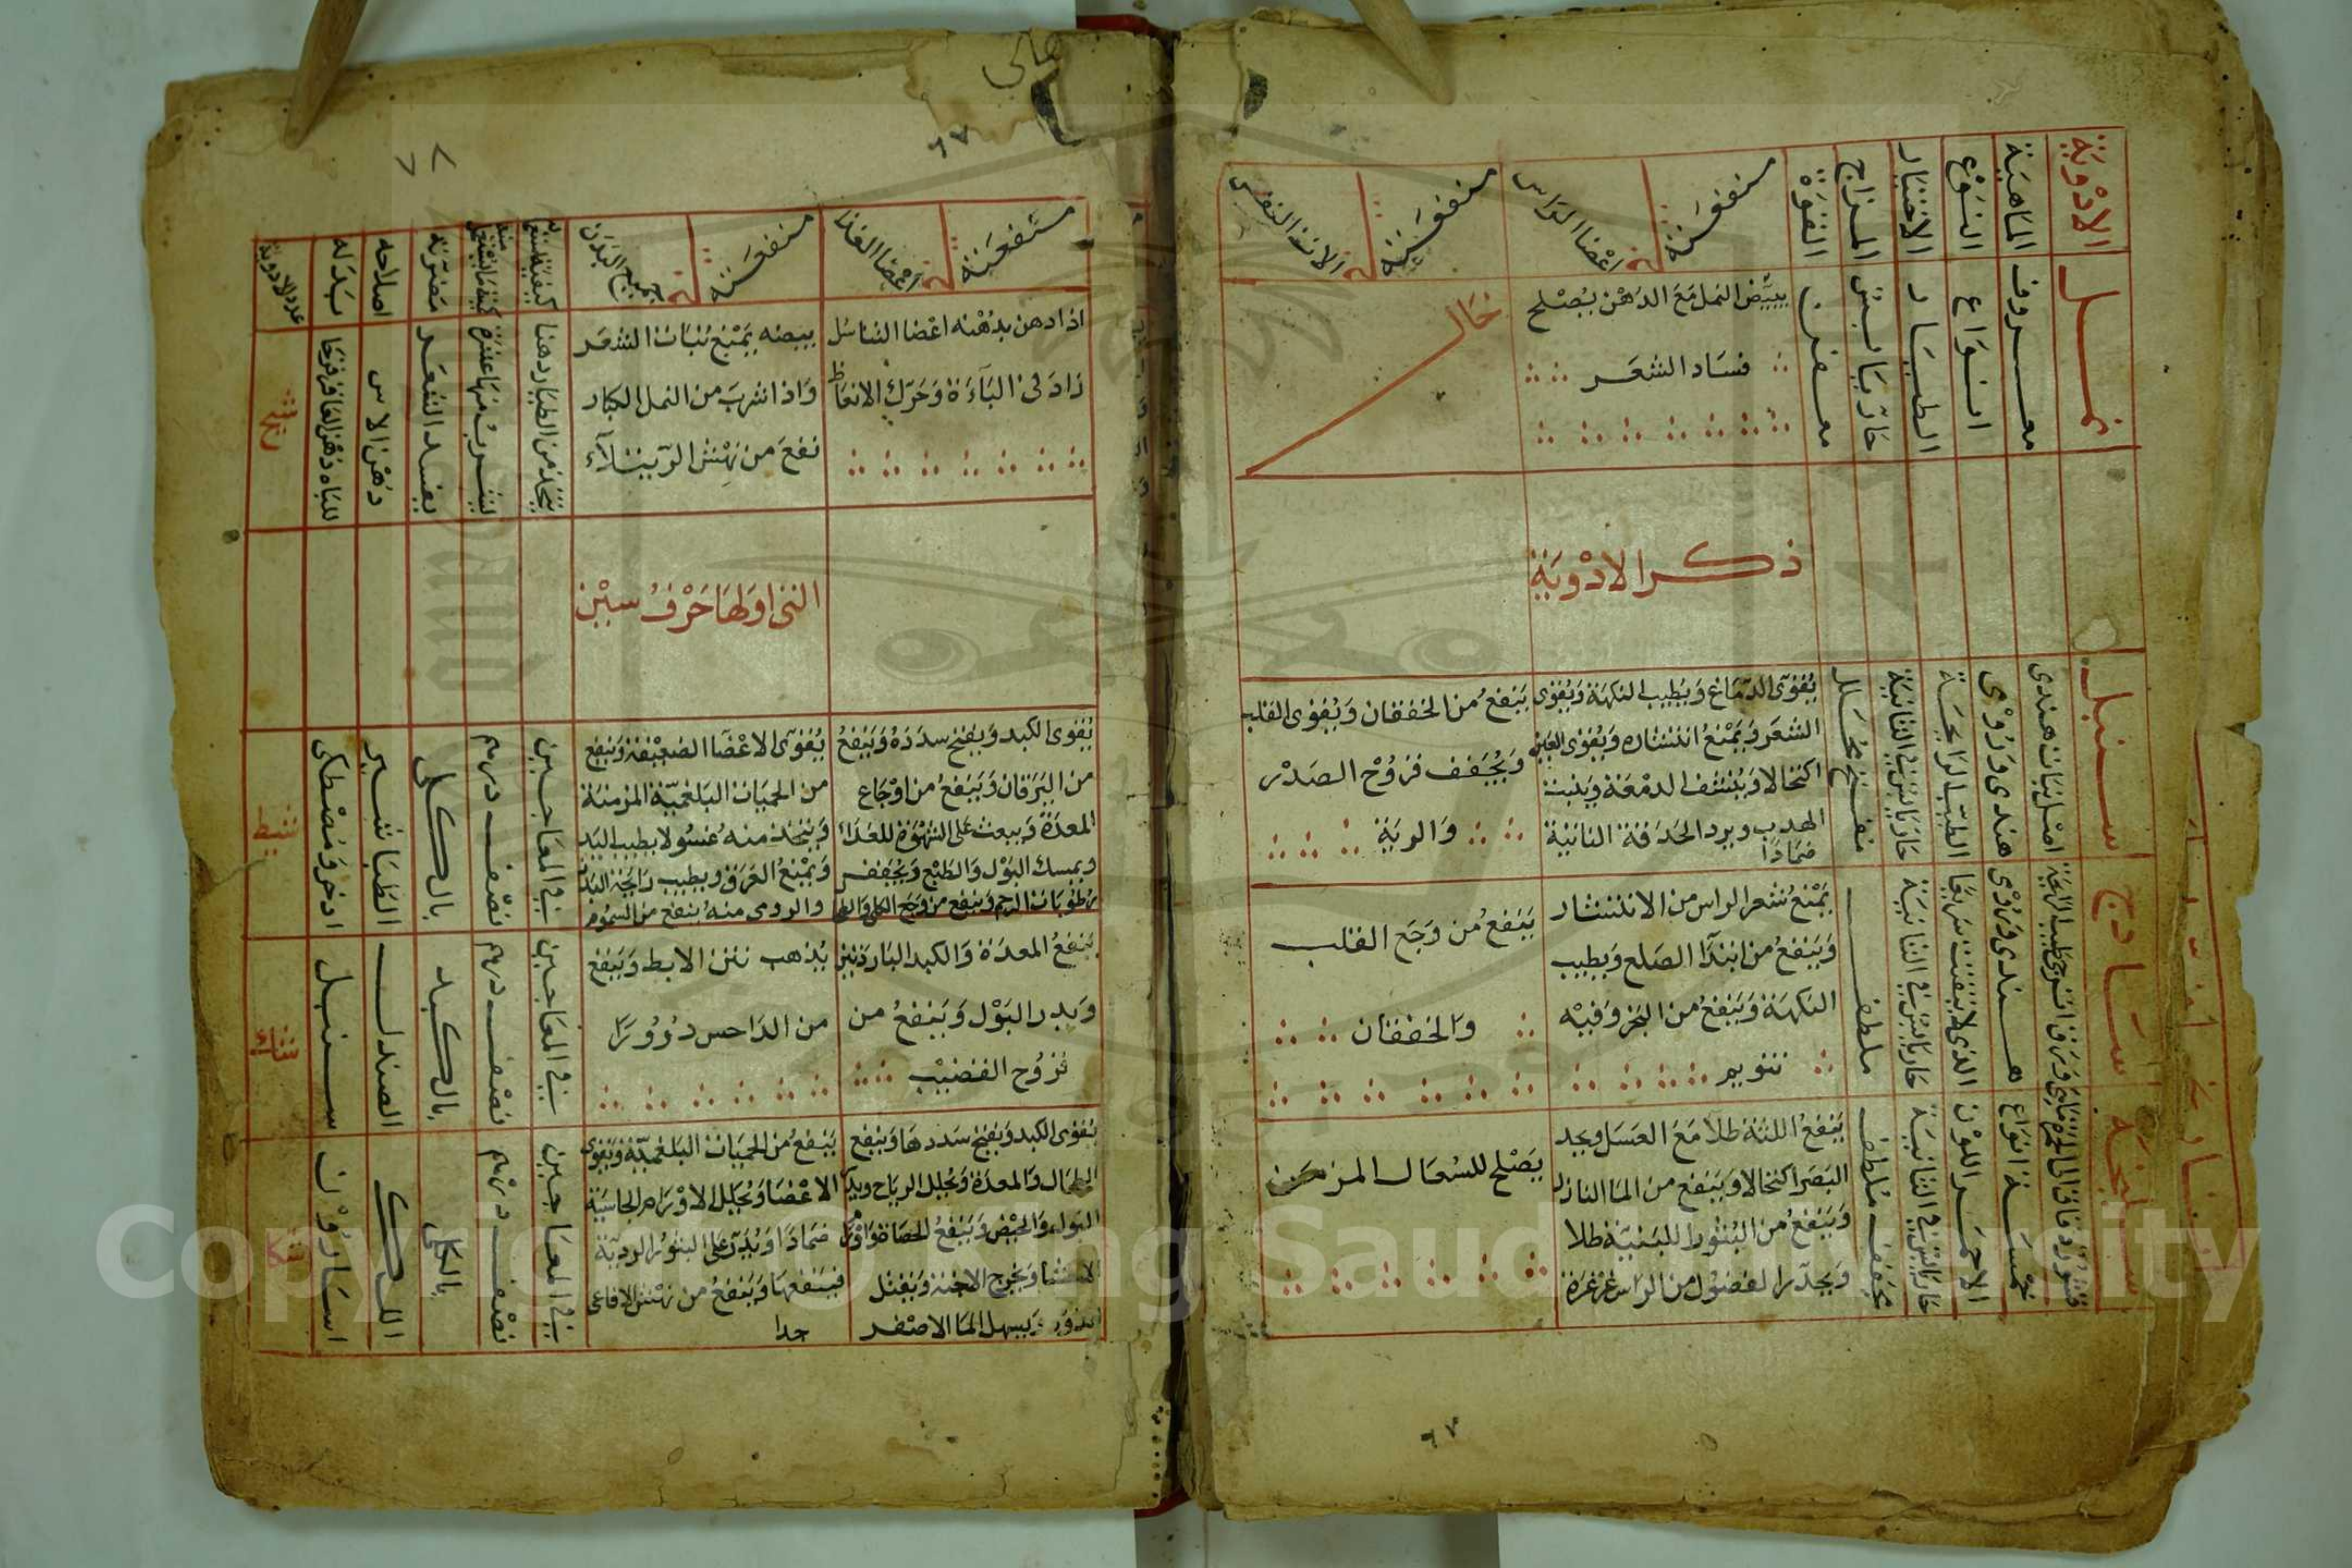 الادوية
الماهية
النوع
الاختيار
المزاج
القوة
منفعته في اعضا الراس
منفعته في الات النفس
نمل
معروف
انواع
الطيار
حار يابس
معفن
بيض النمل مع الدهن يصلح
فساد الشعر
خال
ذكر الادوية
سنبل
اصل نبات هندى
هندى ورومى
الطيب الرايحة
حار يابس فى الثانية
مفتح محلل
يقوى الدماغ ويطيب النكهة ويقوى
الشعر ويمنع انتشاره ويقوى العين
اكتحالا وينشف الدمعة وينبت
الهدب ويرد الحدقة الناتية
ضمادا
ينفع من الخفقان ويقوى القلب
ويجفف قروح الصدر
والرية
سادج
هندى ورومى
الذى لا يتفتت سريعا
حار يابس فى الثانية
ملطف
يمنع شعر الراس من الانتشار
وينفع من ابتدا الصلع ويطيب
النكهة وينفع من البخر وفيه
تنويم
ينفع من وجع القلب
والخفقان
سليخة
خمسة انواع
الاحمر اللون
حار يابس فى الثانية
مجفف ملطف
ينفع اللثة طلا مع العسل ويحد
البصر اكتحالا وينفع من الما النازل
وينفع من البثور اللبنية طلا
ويحدر الفضول من الراس غرغرة
يصلح للسعال المزمن
٦٧
٦٧
منفعته في اعضا الغذا
منفعته في جميع البدن
كيفية استعماله
مضرته
اصلاحه
بدله
عدد الادوية
اذا دهن بدهنه اعضا التناسل
زاد فى الباءة وحرك الانعاظ
بيضه يمنع نبات الشعر
واذا شرب من النمل الكبار
نفع من نهش الرتيلاء
يتخذ من الطيار دهنا
يفسد الشعر
دهن الاس
التى اولها حرف سين
يقوى الكبد ويفتح سدده وينفع
من اليرقان وينفع من اوجاع
المعدة ويبعث على الشهوة للغذاء
ويمسك البول والطبع ويجفف
رطوبات الرحم وينفع من وجع الكلى
يقوى الاعضا الضعيفة وينفع
من الحميات البلغمية المزمنة
ويتخذ منه غسولا يطيب اليد
ويمنع العرق ويطيب رايحة البدن
والرومى منه ينفع من السموم
فى المعاجين
نصف درهم
بالكلى
الطباشير
اذخر ومصطكى
ينفع المعدة والكبد الباردتين
ويدر البول وينفع من
قروح القضيب
يذهب نتن الابط وينفع
من الداحس ذرورا
فى المعاجين
نصف درهم
بالكبد
الصندل
سنبل
يقوى الكبد ويفتح سددها وينفع
الطحال والمعدة ويحلل الرياح ويدر
البول والحيض وينفع الحصاة واورام
الاحشا ويخرج الاجنة ويقتل
الدود ويسهل الما الاصفر
ينفع من الحميات البلغمية ويقوى
الاعضا ويحلل الاورام الجاسية
ضمادا ويذر على البثور الردية
فينفعها وينفع من نهش الافاعى
جدا
فى المعاجين
نصف درهم
بالكلى
اللك
اسارون